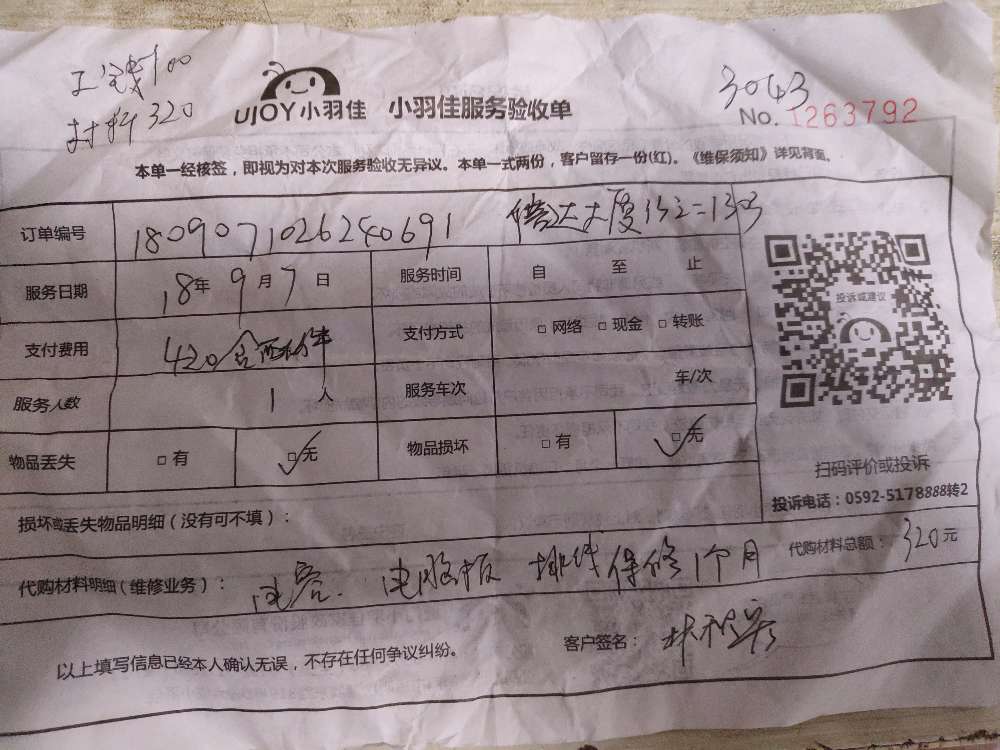 工钱100
材料320
UJOY小羽佳 小羽佳服务验收单
3043
No. 1263792
本单一经核签，即视为对本次服务验收无异议。本单一式两份，客户留存一份(红)。《维保须知》详见背面。
订单编号 1809071026240691 信达大厦
服务日期 18年9月7日 服务时间 自 至 止
投诉或建议
支付费用 420含配件 支付方式 □网络 □现金 □转账
服务人数 1人 服务车次 车/次
物品丢失 □有 □无 物品损坏 □有 □无
扫码评价或投诉
投诉电话：0592-5178888转2
损坏或丢失物品明细（没有可不填）：
代购材料明细（维修业务）： 电容、电脑板 排线保修1个月 代购材料总额：320元
以上填写信息已经本人确认无误，不存在任何争议纠纷。 客户签名：